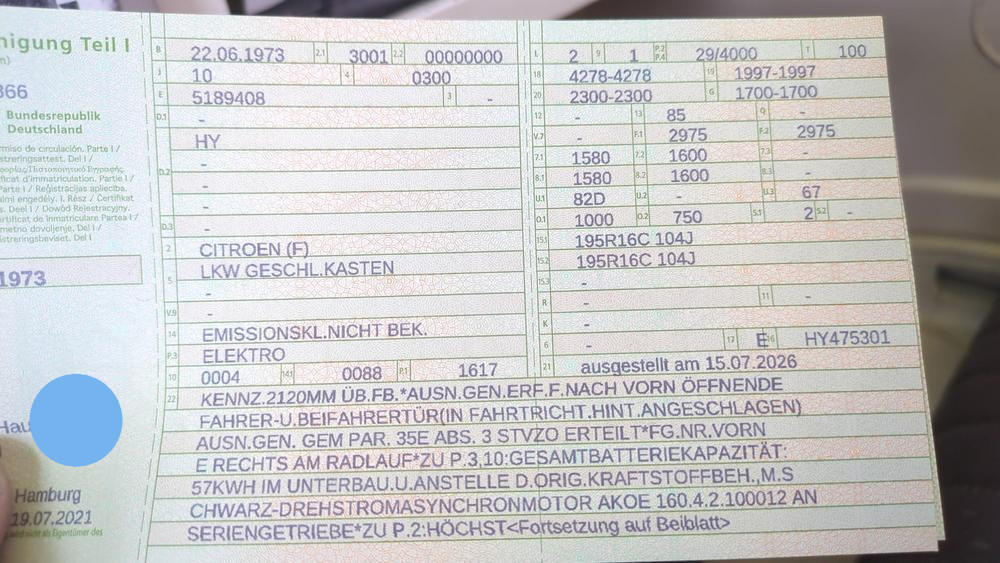 nigung Teil I
366
Bundesrepublik
Deutschland
rmiso de circulación. Parte I /
streringsattest. Del I /
ficat d'immatriculation. Partie I /
Parte I / Reģistrācijas apliecība.
almi engedély. I. Rész / Certifikat
s. Deel I / Dowód Rejestracyjny.
ertificat de Inmatriculare Partea I /
metno dovoljenje. Del I /
streringsbeviset. Del I
1973
Hau
Hamburg
19.07.2021
wird nicht als Eigentümer des
B 22.06.1973 2.1 3001 2.2 00000000
J 10 4 0300
E 5189408 3 -
D.1 -
HY
-
D.2 -
-
D.3 -
2 CITROEN (F)
5 LKW GESCHL.KASTEN
-
V.9 -
14 EMISSIONSKL.NICHT BEK.
P.3 ELEKTRO
10 0004 14.1 0088 P.1 1617
L 2 9 1 P.2 P.4 29/4000 T 100
18 4278-4278 19 1997-1997
20 2300-2300 G 1700-1700
12 - 13 85 Q -
V.7 - F.1 2975 F.2 2975
7.1 1580 7.2 1600 7.3 -
8.1 1580 8.2 1600 8.3 -
U.1 82D U.2 - U.3 67
O.1 1000 O.2 750 S.1 2 S.2 -
15.1 195R16C 104J
15.2 195R16C 104J
15.3 -
R - 11 -
K -
6 - 17 E 16 HY475301
21 ausgestellt am 15.07.2026
22 KENNZ.2120MM ÜB.FB.*AUSN.GEN.ERF.F.NACH VORN ÖFFNENDE
FAHRER-U.BEIFAHRERTÜR(IN FAHRTRICHT.HINT.ANGESCHLAGEN)
AUSN.GEN. GEM PAR. 35E ABS. 3 STVZO ERTEILT*FG.NR.VORN
E RECHTS AM RADLAUF*ZU P.3,10:GESAMTBATTERIEKAPAZITÄT:
57KWH IM UNTERBAU.U.ANSTELLE D.ORIG.KRAFTSTOFFBEH.,M.S
CHWARZ-DREHSTROMASYNCHRONMOTOR AKOE 160.4.2.100012 AN
SERIENGETRIEBE*ZU P.2:HÖCHST<Fortsetzung auf Beiblatt>